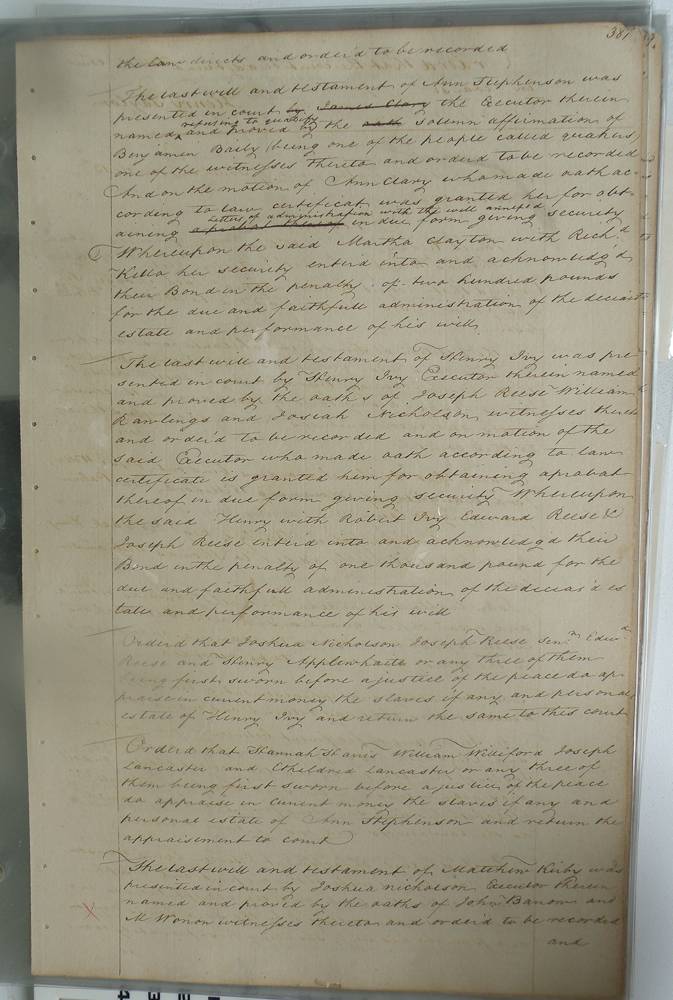 381
the law directs and order'd to be recorded
The last will and testament of Ann Stephenson was
presented in court by James Clary the Executor therein
refusing to qualify
named and proved by the oath solemn affirmation of
Benjamin Baily (being one of the people called quakers)
one of the witnesses thereto and order'd to be recorded
And on the motion of Ann Clary who made oath ac-
cording to law certificat was granted her for obt-
Letters of administration with the will annexed
aining a probat thereof in due form giving security
Whereupon the said Martha Clayton with Richd
Kello her security enter'd into and acknowledgd
their Bond in the penalty of two hundred pounds
for the due and faithfull administration of the
estate and performance of his will
The last will and testament of Henry Ivy was pre
sented in court by Henry Ivy Executor therein named
and proved by the oath s of Joseph Reese William
Rawlings and Josiah Nicholson witnesses thereto
and order'd to be recorded and on motion of the
said Executor who made oath according to law
certificate is granted him for obtaining aprobat
thereof in due form giving security Whereupon
the said Henry with Robert Ivy Edward Reese &
Joseph Reese enter'd into and acknowledgd their
Bond in the penalty of one thousand pound for the
due and faithfull administration of the deceas'd es
tate and performance of his will
Orderd that Joshua Nicholson Joseph Reese Senr Edwd
Reese and Henry Applewhaite or any three of them
being first sworn before a justice of the peace do ap-
praise in current money the slaves if any and personal
estate of Henry Ivy and return the same to this court
Orderd that Hannah Haris William Williford Joseph
Lancaster and Etheldred Lancaster or any three of
them being first sworn before a justice of the peace
do appraise in current money the slaves if any and
personal estate of Ann Stephenson and return the
appraisement to court
The last will and testament of Matthew Kirby was
presented in court by Joshua Nicholson Executor therein
named and proved by the oaths of John Barrow and
M witnesses thereto and order'd to be recorded
and